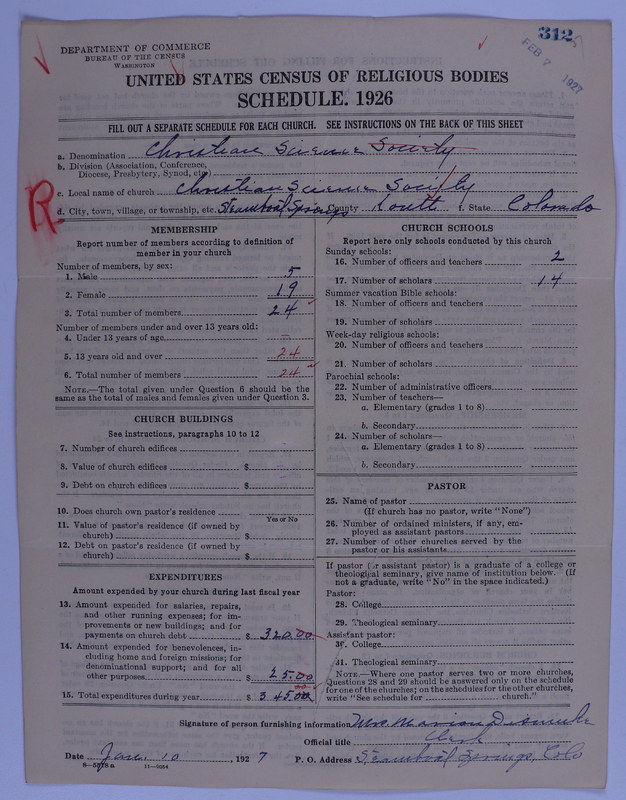 312
FEB 7 1927
DEPARTMENT OF COMMERCE
BUREAU OF THE CENSUS
WASHINGTON
UNITED STATES CENSUS OF RELIGIOUS BODIES
SCHEDULE. 1926
FILL OUT A SEPARATE SCHEDULE FOR EACH CHURCH. SEE INSTRUCTIONS ON THE BACK OF THIS SHEET
a. Denomination Christian Science Society
b. Division (Association, Conference,
Diocese, Presbytery, Synod, etc.)
c. Local name of church Christian Science Society
d. City, town, village, or township, etc. Steamboat Springs County Routt f. State Colorado
R
MEMBERSHIP
Report number of members according to definition of
member in your church
Number of members, by sex:
1. Male 5
2. Female 19
3. Total number of members 24
Number of members under and over 13 years old:
4. Under 13 years of age —
5. 13 years old and over 24
6. Total number of members 24
NOTE.—The total given under Question 6 should be the
same as the total of males and females given under Question 3.
CHURCH BUILDINGS
See instructions, paragraphs 10 to 12
7. Number of church edifices
8. Value of church edifices $
9. Debt on church edifices $
10. Does church own pastor's residence
Yes or No
11. Value of pastor's residence (if owned by
church) $
12. Debt on pastor's residence (if owned by
church) $
EXPENDITURES
Amount expended by your church during last fiscal year
13. Amount expended for salaries, repairs,
and other running expenses; for im-
provements or new buildings; and for
payments on church debt $ 320.00
14. Amount expended for benevolences, in-
cluding home and foreign missions; for
denominational support; and for all
other purposes $ 25.00
15. Total expenditures during year $ 345.00
CHURCH SCHOOLS
Report here only schools conducted by this church
Sunday schools:
16. Number of officers and teachers 2
17. Number of scholars 14
Summer vacation Bible schools:
18. Number of officers and teachers
19. Number of scholars
Week-day religious schools:
20. Number of officers and teachers
21. Number of scholars
Parochial schools:
22. Number of administrative officers
23. Number of teachers—
a. Elementary (grades 1 to 8)
b. Secondary
24. Number of scholars—
a. Elementary (grades 1 to 8)
b. Secondary
PASTOR
25. Name of pastor
(If church has no pastor, write "None")
26. Number of ordained ministers, if any, em-
ployed as assistant pastors
27. Number of other churches served by the
pastor or his assistants
If pastor (or assistant pastor) is a graduate of a college or
theological seminary, give name of institution below. (If
not a graduate, write "No" in the space indicated.)
Pastor:
28. College
29. Theological seminary
Assistant pastor:
30. College
31. Theological seminary
NOTE.—Where one pastor serves two or more churches,
Questions 28 and 29 should be answered only on the schedule
for one of the churches; on the schedules for the other churches,
write "See schedule for church."
Signature of person furnishing information Mrs Marian
Official title Clerk
Date Jan. 10, 1927 P. O. Address Steamboat Springs, Colo
11—1024